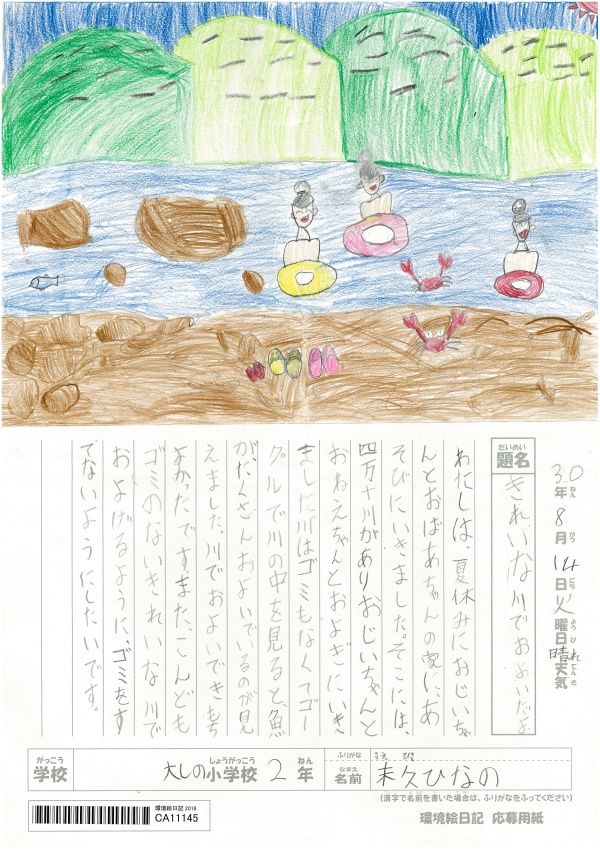 30年8月14日火曜日晴れ天気
ねん がつ にち ようび てんき
だいめい
題名
きれいな川でおよいだよ
わたしは、夏休みにおじいちゃ
んとおばあちゃんの家に、あ
そびにいきました。そこには、
四万十川がありおじいちゃんと
おねえちゃんとおよぎにいき
ました川はゴミもなくてゴー
グルで川の中を見ると、魚
がたくさんおよいでいるのが見
えました。川でおよいできもち
よかったです。また、こんども
ゴミのないきれいな川で
およげるように、ゴミをす
てないようにしたいです。
がっこう
学校
しょうがっこう ねん
大しの小学校 2年
ふりがな すえ ひさ
なまえ
名前 末久ひなの
(漢字で名前を書いた場合は、ふりがなをふってください)
環境絵日記 2018
CA11145
環境絵日記 応募用紙